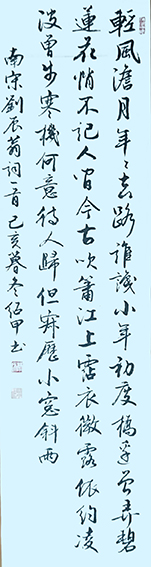 輕風澹月年々去路誰識小年初度橋邊曾弄碧
蓮花悄不記人間今古吹簫江上霑衣微露依約凌
波曾步寒機何意待人歸但寂歷小窗斜雨
南宋劉辰翁詞一首己亥暮冬甲书